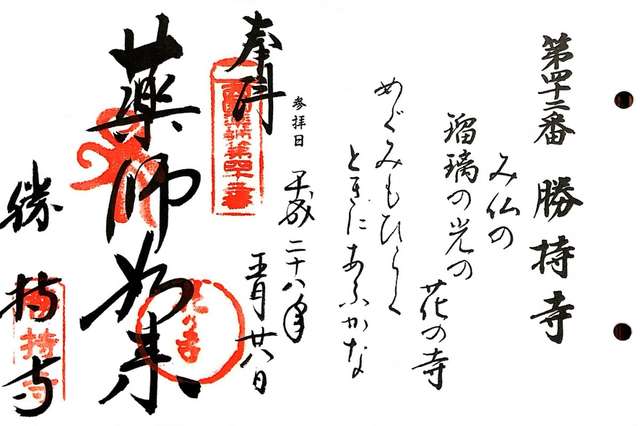 第四十二番 勝持寺
み仏の
瑠璃の光の
花の寺
めぐみもひらく
ときにあふかな
参拝日 平成二十八年
五月廿八日
奉拝
第四十二番
薬師如来
花の寺
勝持寺